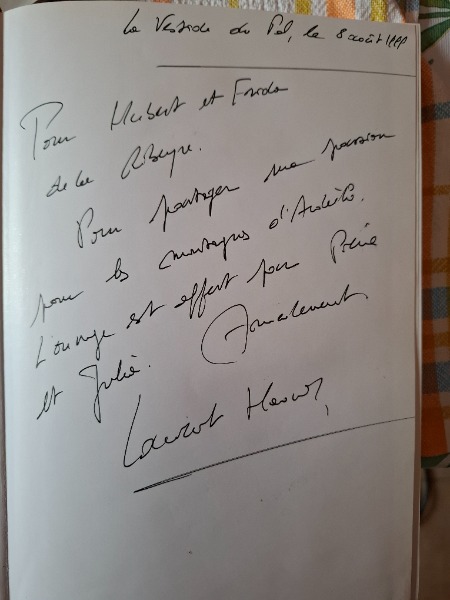 La Vestide du Pal, le 8 août 1999
Pour Hubert et Frida
de la Ribeyre.
Pour partager ma passion
pour les montagnes d'Ardèche.
L'ouvrage est offert par
et Julie. Amicalement,
Laurent